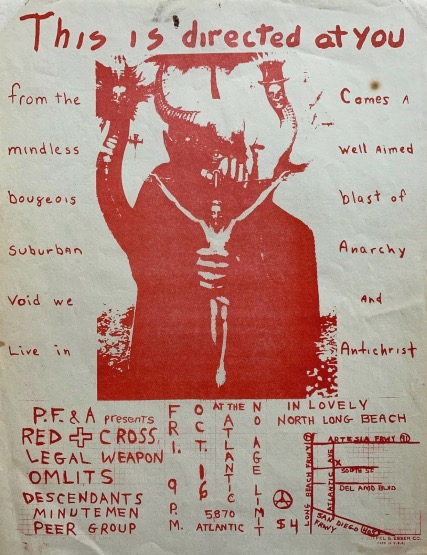 This is directed at you
from the
mindless
bougeois
suburban
void we
Live in
Comes A
well Aimed
blast of
Anarchy
And
Antichrist
P.F. & A presents
RED CROSS
LEGAL WEAPON
OMLITS
DESCENDANTS
MINUTEMEN
PEER GROUP
FRI. 9 P.M.
OCT. 16
AT THE
ATLANTIC
5870
ATLANTIC
NO AGE LIMIT
$4
IN LOVELY
NORTH LONG BEACH
ARTESIA FRWY 91
LONG BEACH FRWY
ATLANTIC AVE
X
SOUTH ST
DEL AMO BLVD
SAN DIEGO 405
FRWY